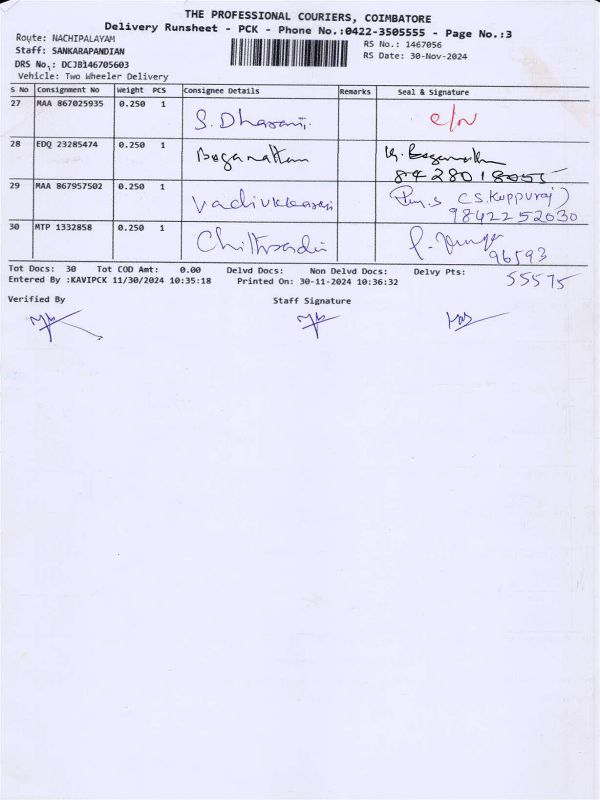 THE PROFESSIONAL COURIERS, COIMBATORE
Delivery Runsheet - PCK - Phone No.:0422-3505555 - Page No.:3
Route: NACHIPALAYAM
RS No.: 1467056
Staff: SANKARAPANDIAN
RS Date: 30-Nov-2024
DRS No.: DCJB146705603
Vehicle: Two Wheeler Delivery
S No Consignment No Weight PCS Consignee Details Remarks Seal & Signature
27 MAA 867025935 0.250 1 S. Dharani
28 EDQ 23285474 0.250 1
8428018055
29 MAA 867957502 0.250 1 (S.Kuppuraj)
9842252030
30 MTP 1332858 0.250 1
96593
Tot Docs: 30 Tot COD Amt: 0.00 Delvd Docs: Non Delvd Docs: Delvy Pts: 55575
Entered By :KAVIPCK 11/30/2024 10:35:18 Printed On: 30-11-2024 10:36:32
Verified By Staff Signature